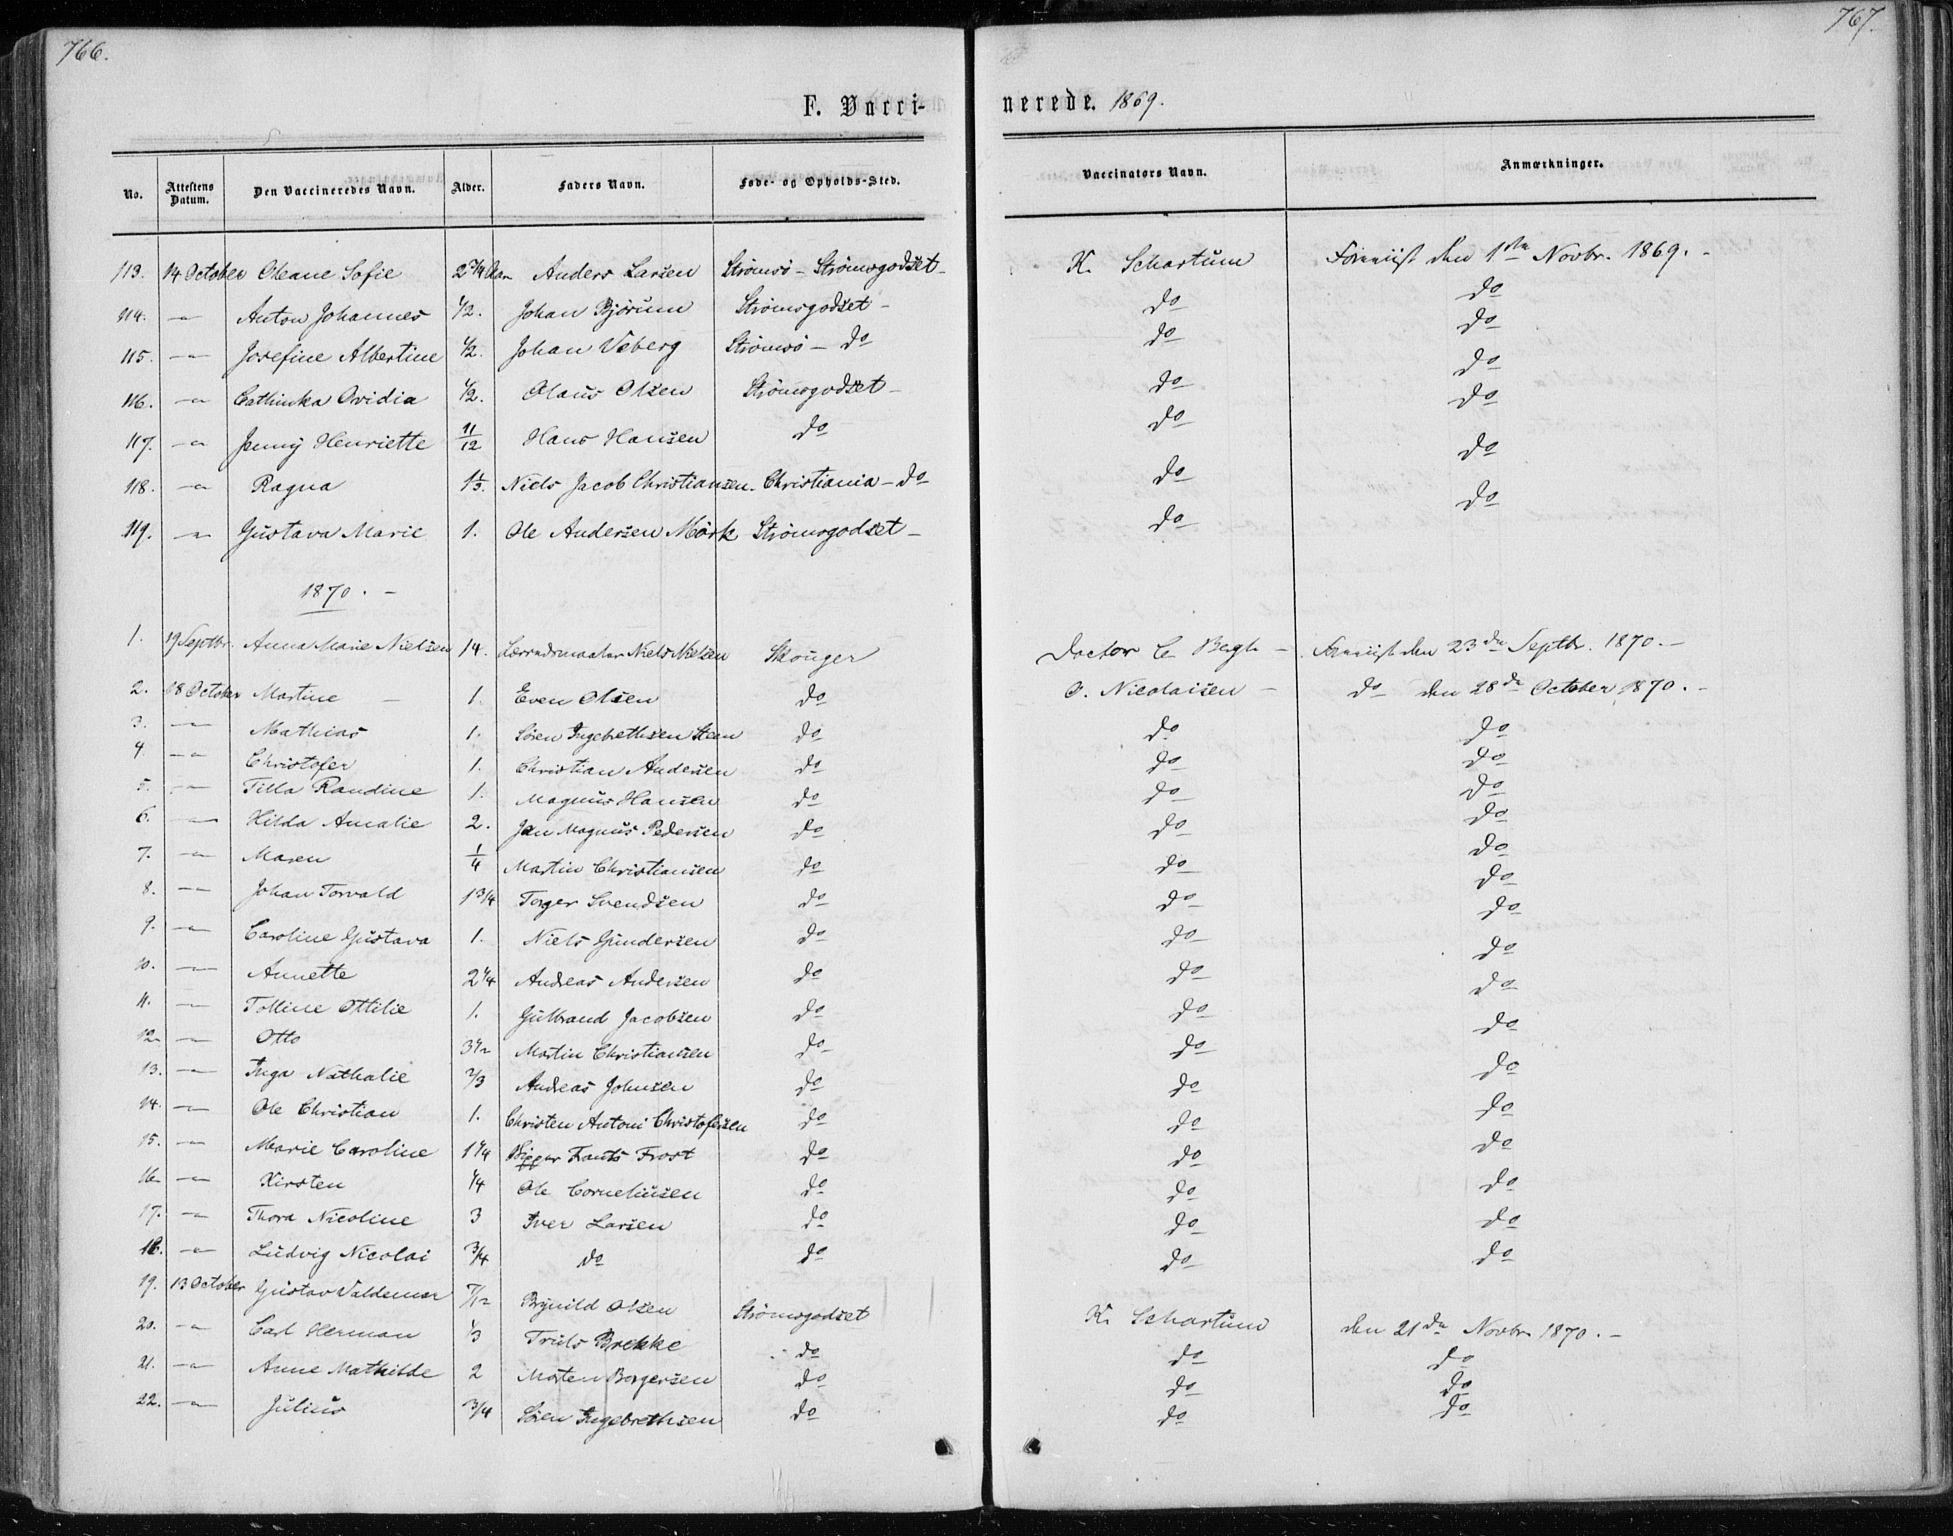 766.
767.
F. Vacci-
nerede. 1869.
No. Attestens Datum. Den Vaccineredes Navn. Alder. Faders Navn. Føde- og Opholds-Sted. Vaccinators Navn. Anmærkninger.
113. 14 October Oleane Sofie 2 3/4 Aar Anders Larsen Strømsø - Strømsgodset - K. Schartum den 1ste Novbr. 1869. -
114. - " - Anton Johannes 1/2. Johan Bjørum Strømsgodset - do do
115. - " - Josefine Albertine 1/2. Johan Veberg Strømsø - do do do
116. - " - Cathinka Ovidia 1/2. Olaus Olsen Strømsgodset - do do
117. - " - Jenny Henriette 11/12 Hans Hansen do do do
118. - " - Ragna 1 1/3. Niels Jacob Christiansen. Christiania - do do do
119. - " - Gustava Marie 1. Ole Andersen Mørk Strømsgodset - do do
1870. -
1. 19 Septbr. Anna Marie Nielsen 14. Niels Nielsen Skouger Doctor C. Bugh - den 23de Septbr. 1870. -
2. 18 October Martine - 1. Even Olsen do O. Nicolaisen - do den 28de October 1870. -
3. - " - Mathias 1. Søren Ingebrethsen Steen do do do
4. - " - Christofer 1. Christian Andersen do do do
5. - " - Tilla Randine 1. Magnus Hansen do do do
6. - " - Hilda Amalie 2. Jan Magnus Pedersen do do do
7. - " - Maren 1/4 Martin Christiansen do do do
8. - " - Johan Torvald 1 3/4 Torger Svendsen do do do
9. - " - Caroline Gustava 1. Niels Gundersen do do do
10. - " - Annette 2 1/4 Andreas Andersen do do do
11. - " - Tolline Ottilie 1. Gulbrand Jacobsen do do do
12. - " - Otto 3 1/2 Martin Christiansen do do do
13. - " - Inga Nathalie 2/3 Andreas Johnsen do do do
14. - " - Ole Christian 1. Christen Antoni Christofersen do do do
15. - " - Marie Caroline 1 1/4 Frants Frost do do do
16. - " - Kirsten 1/4 Ole Corneliusen do do do
17. - " - Thora Nicoline 3 Iver Larsen do do do
18. - " - Ludvig Nicolai 3/4 do do do do
19. 13 October Gustav Valdemar 7/12 Brynild Olsen Strømsgodset K. Schartum den 21de Novbr. 1870. -
20. - " - Carl Herman 1/3 Truls Brekke do do do
21. - " - Anne Mathilde 2 Morten Borgersen do do do
22. - " - Julius 3/4 Søren Ingebrethsen do do do